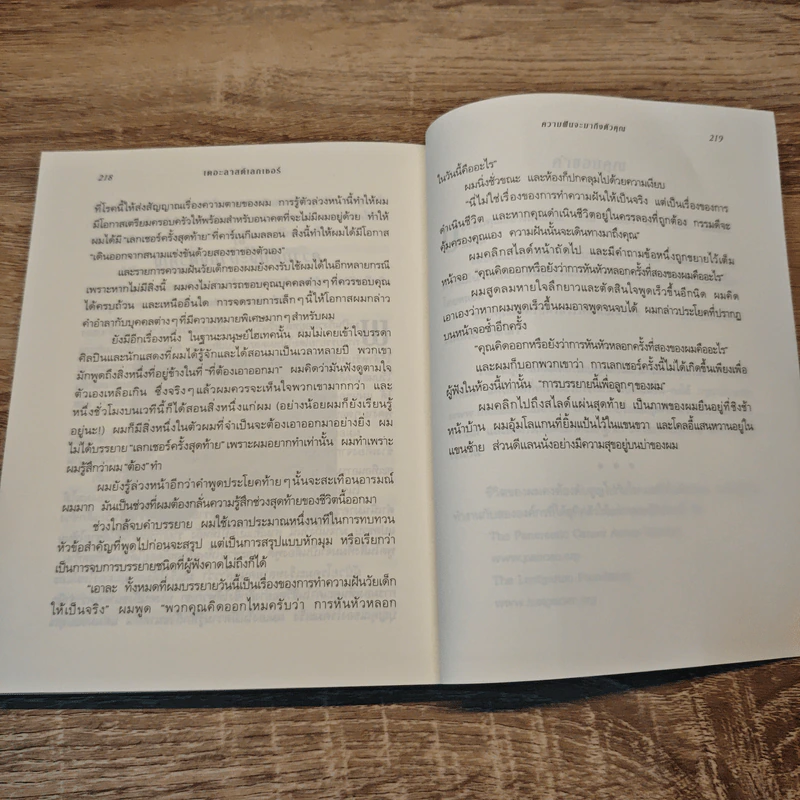 218
เดอะลาสต์เลกเชอร์
ที่โรคนี้ให้ส่งสัญญาณเรื่องความตายของผม การรู้ตัวล่วงหน้านี้ทำให้ผม
มีโอกาสเตรียมครอบครัวให้พร้อมสำหรับอนาคตที่จะไม่มีผมอยู่ด้วย ทำให้
ผมได้มี “เลกเชอร์ครั้งสุดท้าย” ที่คาร์เนกีเมลลอน สิ่งนี้ทำให้ผมได้มีโอกาส
“เดินออกจากสนามแข่งขันด้วยสองขาของตัวเอง”
และรายการความฝันวัยเด็กของผมยังคงรับใช้ผมได้ในอีกหลายกรณี
เพราะหากไม่มีสิ่งนี้ ผมคงไม่สามารถขอบคุณบุคคลต่างๆ ที่ควรขอบคุณ
ได้ครบถ้วน และเหนืออื่นใด การจดรายการเล็กๆ นี้ให้โอกาสผมกล่าว
คำอำลากับบุคคลต่างๆ ที่มีความหมายพิเศษมากๆ สำหรับผม
ยังมีอีกเรื่องหนึ่ง ในฐานะมนุษย์ไฮเทคนั้น ผมไม่เคยเข้าใจบรรดา
ศิลปินและนักแสดงที่ผมได้รู้จักและได้สอนมาเป็นเวลาหลายปี พวกเขา
มักพูดถึงสิ่งหนึ่งที่อยู่ข้างในที่ “ที่ต้องเอาออกมา” ผมคิดว่ามันฟังดูตามใจ
ตัวเองเหลือเกิน ซึ่งจริงๆ แล้วผมควรจะเห็นใจพวกเขามากกว่า และ
หนึ่งชั่วโมงบนเวทีนี้ก็ได้สอนสิ่งหนึ่งแก่ผม (อย่างน้อยผมก็ยังเรียนรู้
อยู่นะ!) ผมก็มีสิ่งหนึ่งในตัวผมที่จำเป็นจะต้องเอาออกมาอย่างยิ่ง ผม
ไม่ได้บรรยาย “เลกเชอร์ครั้งสุดท้าย” เพราะผมอยากทำเท่านั้น ผมทำเพราะ
ผมรู้สึกว่าผม “ต้อง” ทำ
ผมยังรู้ล่วงหน้าว่าคำพูดประโยคท้ายๆ นั้นจะสะเทือนอารมณ์
ผมมาก มันเป็นช่วงที่ผมต้องกลั่นความรู้สึกช่วงสุดท้ายของชีวิตนี้ออกมา
ช่วงใกล้จบคำบรรยาย ผมใช้เวลาประมาณหนึ่งนาทีในการทบทวน
หัวข้อสำคัญที่พูดไปก่อนจะสรุป แต่เป็นการสรุปแบบหักมุม หรือเรียกว่า
เป็นการจบการบรรยายชนิดที่ผู้ฟังคาดไม่ถึงก็ได้
“เอาละ ทั้งหมดที่ผมบรรยายวันนี้เป็นเรื่องของการทำความฝันวัยเด็ก
ให้เป็นจริง” ผมพูด “พวกคุณคิดออกไหมครับว่า การหันหัวหลอก
ความฝันจะมาถึงตัวคุณ
219
ในวันนี้คืออะไร”
ผมนิ่งชั่วขณะ และห้องก็ปกคลุมไปด้วยความเงียบ
“นี่ไม่ใช่เรื่องของการทำความฝันให้เป็นจริง แต่เป็นเรื่องของการ
ดำเนินชีวิต และหากคุณดำเนินชีวิตอยู่ในครรลองที่ถูกต้อง กรรมดีจะ
คุ้มครองคุณเอง ความฝันนั้นจะเดินทางมาถึงคุณ”
ผมคลิกสไลด์หน้าถัดไป และมีคำถามข้อหนึ่งถูกขยายไว้เต็ม
หน้าจอ “คุณคิดออกหรือยังว่าการหันหัวหลอกครั้งที่สองของผมคืออะไร”
ผมสูดลมหายใจลึกยาวและตัดสินใจพูดเร็วขึ้นอีกนิด ผมคิด
เอาเองว่าหากผมพูดเร็วขึ้นผมอาจพูดจนจบได้ ผมกล่าวประโยคที่ปรากฏ
บนหน้าจอซ้ำอีกครั้ง
“คุณคิดออกหรือยังว่าการหันหัวหลอกครั้งที่สองของผมคืออะไร”
และผมก็บอกพวกเขาว่า การเลกเชอร์ครั้งนี้ไม่ได้เกิดขึ้นเพียงเพื่อ
ผู้ฟังในห้องนี้เท่านั้น “การบรรยายนี้เพื่อลูกๆ ของผม”
ผมคลิกไปถึงสไลด์แผ่นสุดท้าย เป็นภาพของผมยืนอยู่ที่ชิงช้า
หน้าบ้าน ผมอุ้มโลแกนที่ยิ้มแป้นไว้ในแขนขวา และโคลอี้แสนหวานอยู่ใน
แขนซ้าย ส่วนดีแลนนั่งอย่างมีความสุขอยู่บนบ่าของผม